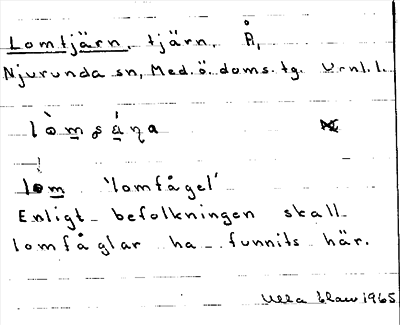 Lomtjärn, tjärn, Å,
Njurunda sn, Med.ö. doms. tg. V-nl. l.
lom 'lomfågel'
Enligt befolkningen skall
lomfåglar ha funnits här.
Ulla 1965